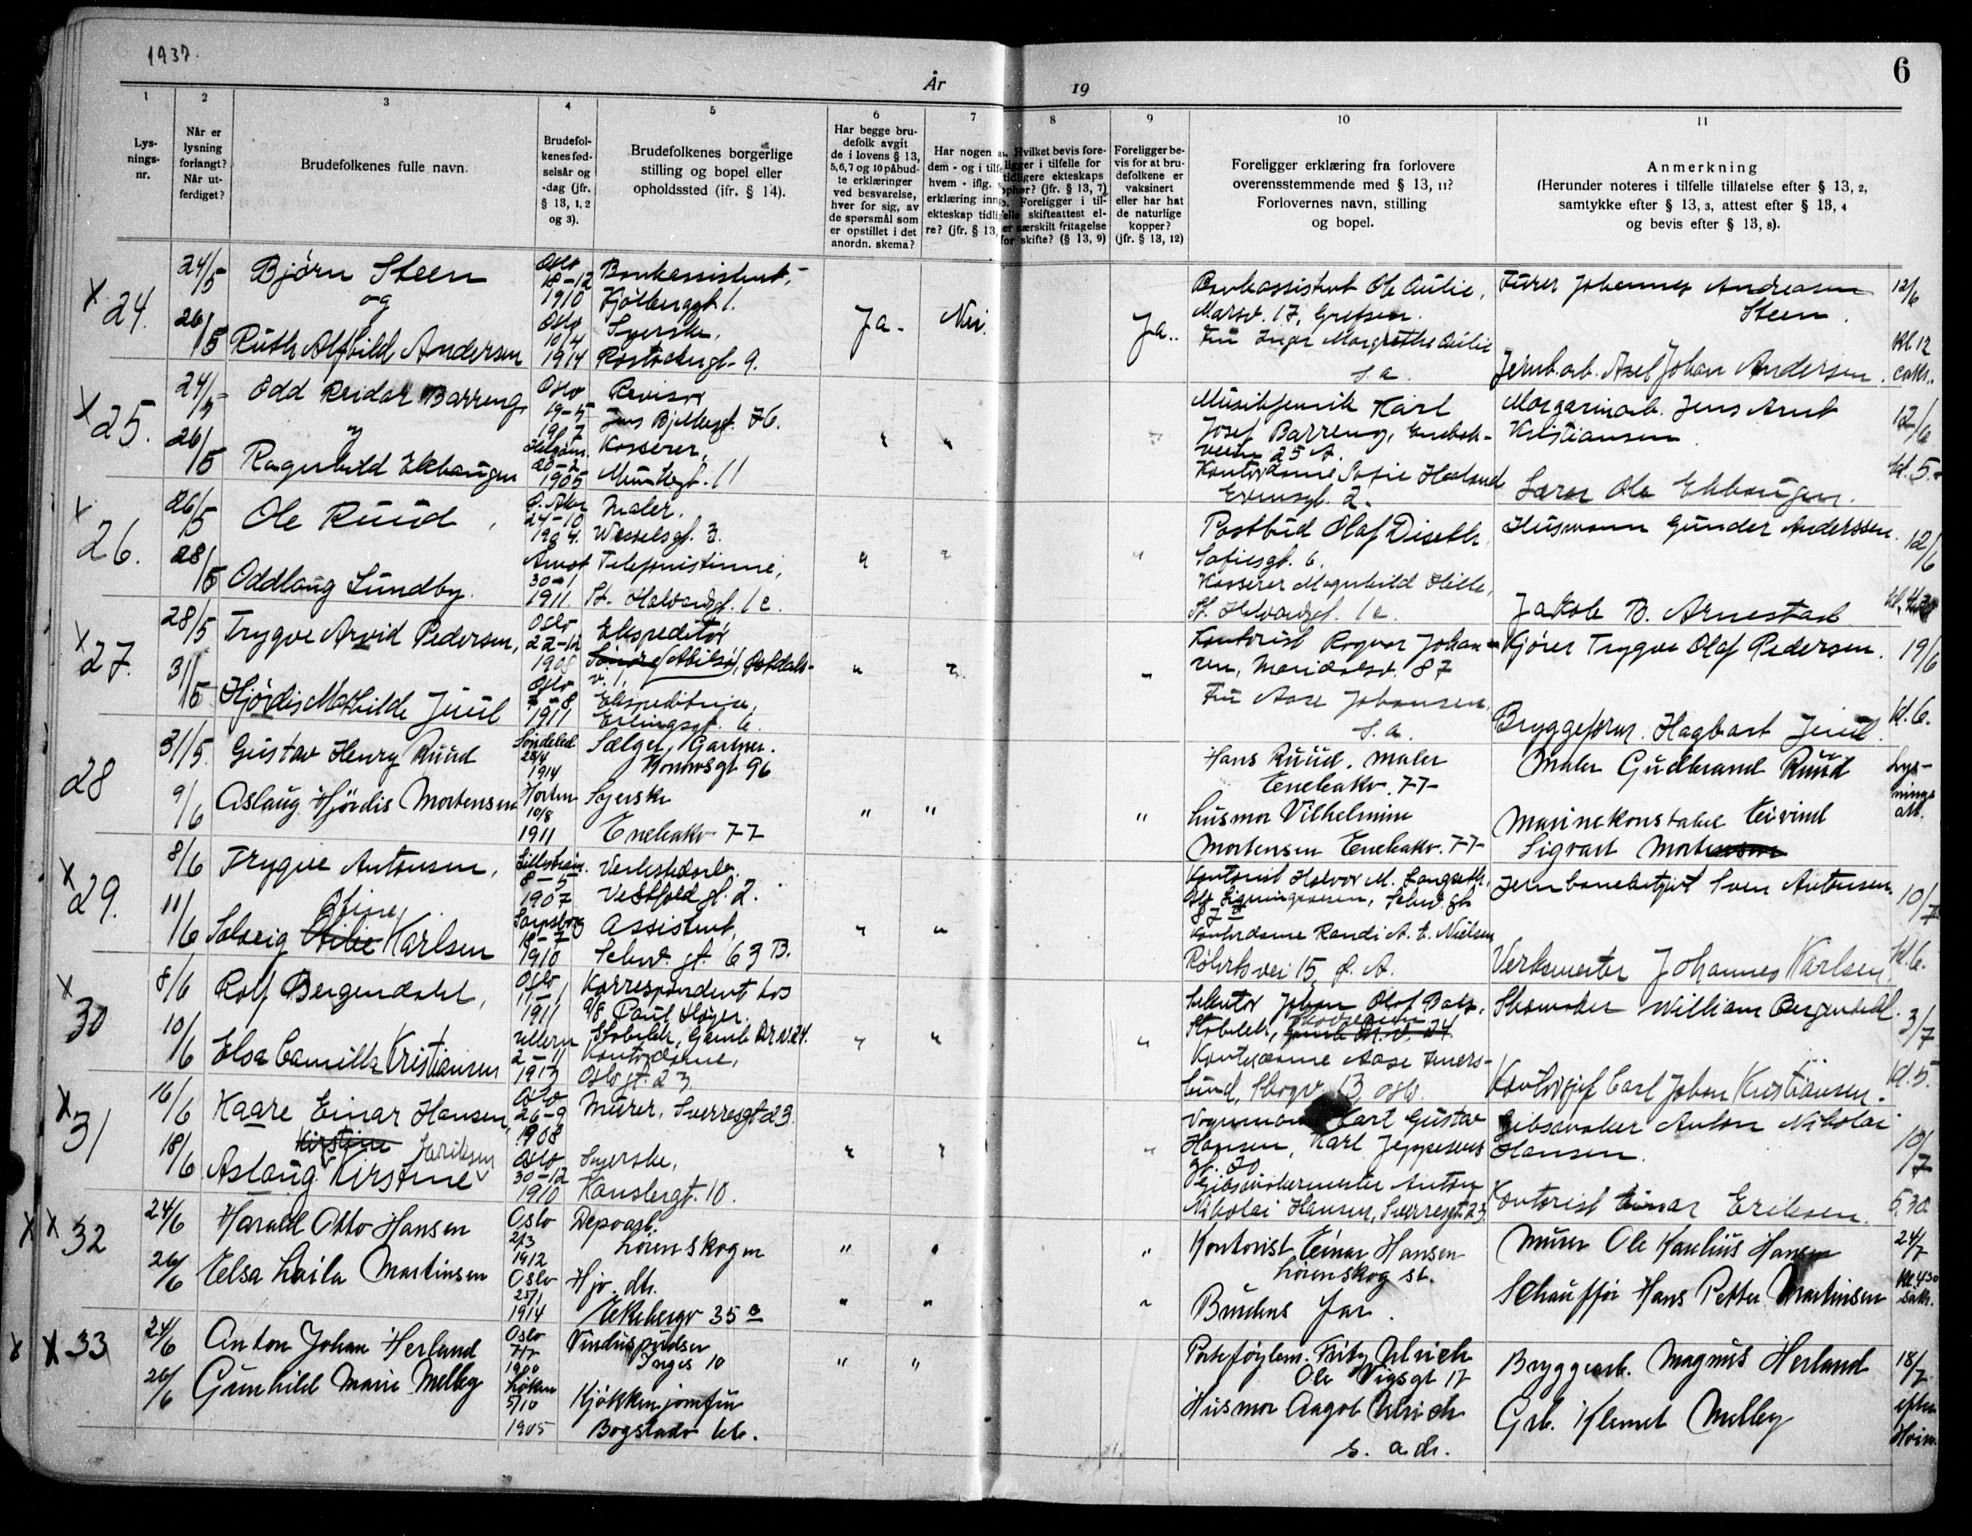 1937.
År
19
6
1
2
3
4
5
6
7
8
9
10
11
Lys-
nings-
nr.
Når er
lysning
forlangt?
Når ut-
ferdiget?
Brudefolkenes fulle navn.
Brudefol-
kenes fød-
selsår og
-dag (jfr.
§ 13, 1, 2
og 3).
Brudefolkenes borgerlige
stilling og bopel eller
opholdssted (ifr. § 14).
Har begge bru-
defolk avgit
de i lovens § 13,
5, 6, 7 og 10 påbud-
te erklæringer
ved besvarelse,
hver for sig, av
de spørsmål som
er opstillet i det
anordn. skema?
Har nogen a
dem - og i tilf
hvem - iflg.
erklæring inng
ekteskap tidli
re? (jfr. § 13,
Hvilket bevis fore-
ligger i tilfelle for
tidligere ekteskaps
ophør? (jfr. § 13, 7)
Foreligger i til-
felle skifteattest el-
er særskilt fritagelse
for skifte? (§ 13, 9)
Foreligger be-
vis for at bru-
defolkene er
vaksinert
eller har hat
de naturlige
kopper?
(jfr. § 13, 12)
Foreligger erklæring fra forlovere
overensstemmende med § 13, 11?
Forlovernes navn, stilling
og bopel.
Anmerkning
(Herunder noteres i tilfelle tillatelse efter § 13, 2,
samtykke efter § 13, 3, attest efter § 13, 4
og bevis efter § 13, 8).
x 24.
24/5
26/5
Bjørn Steen
og
Ruth Alfhild Andersen
Oslo
18-12
1910
Oslo
10/4
1914
Bankassistent,
Kjølberggt. 1.
Syerske,
Rostockergt. 9.
Ja.
Nei.
Ja.
Bankassistent Ole Aulie,
Marsv. 17, Grefsen.
Fru Inger Margrethe Aulie
s. a.
Furer Johannes Andreasen
Steen.
Jernb.arb. Axel Johan Andersen.
12/6
kl. 12
x 25.
24/5
26/5
Odd Reidar Barreng
Ragnhild Ekhaugen
Oslo
19-5
1907
20-2
1905
Revisor
Jens Bjelkesgt. 76.
Kasserer,
Munkegt. 11
Musikfenrik Karl
Josef Barreng, Enebak-
veien 25 A.
Kontordame Sofie Haaland
Margarinarb. Jens Arnt
Kristiansen
Lærer Ole Ekhaugen.
12/6
kl. 5.
x 26.
26/5
28/5
Ole Ruud,
Oddlaug Lundby.
Ø. Aker
24-10
1904.
30-1
1911
Maler.
Wesselsgt. 3.
Telefonistinne,
St. Halvardsgt. 1c.
Postbud Olaf Diseth,
Sofiesgt. 6.
Kasserer Magnhild Hille,
St. Halvardsgt. 1c
Husmann Gunder Anderssen.
Jakob B. Arnestad
12/6
x 27.
28/5
31/5
Trygve Arvid Pedersen,
Hjørdis Mathilde Juul
Oslo
22-12
1908
Oslo
7-8
1911
Ekspeditør
v. 1.
Ekspeditrise,
Erlingsgt. 6.
Kontorist Ragnar Johan-
sen, Maridalsv. 87
Fru Aase Johansen,
s. a.
Kjører Trygve Olaf Pedersen.
Bryggeform. Hagbart Juul.
19/6
kl. 6.
28
31/5.
9/6
Gustav Henry Ruud
Aslaug Hjørdis Mortensen
Søndeled
28/4
1914
Horten
10/8
1911
Sælger, Gartner.
96
Syerske
Enebakv. 77
" " "
Hans Ruud. maler
Enebakv. 77
Husmor Vilhelmine
Mortensen Enebakv. 77
Maler Gudbrand Ruud
Marinekonstabel Eivind
Sigvart Mortensen
Lys-
nings
att.
x 29.
8/6
11/6
Trygve Antonsen,
Solveig Otilie Karlsen
8-5
1907
Sarpsborg
18-7
1910
Verkstedarb.
Vestfold gt. 2.
Assistent,
Schw. gt. 63 B.
Kontordame Randi A. E. Nielsen
15, Ø. A.
Jernbanebetjent Sven Antonsen
Verksmester Johannes Karlsen
10/7
kl. 6.
x 30
8/6
10/6
Rolf Bergendahl,
Elsa Camilla Kristiansen
Oslo
11-1
1911
Ullern
2-11
1913
Korrespondent hos
A/S Paul Høyer.
Kontordame,
Oslo gt. 23
Kontordame Aase Amers-
lund, Skogv. 13, Oslo.
Skomaker William Bergendahl.
Kontorsjef Carl Johan Kristiansen.
3/7
kl. 5.
x 31
16/6
18/6
Kaare Einar Hansen,
Kirstine
Aslaug Kirstine
Oslo
26-9
1908
Oslo
30-12
1910
Murer, Sverresgt. 23
Syerske,
Vognmann Karl Gustav
Hansen, Karl Jeppesens
gt. 20
Gibsmakermester Anton
Nikolai Hansen, Sverresgt. 23
Gibsmaker Anton Nikolai
Hansen.
Kontorist Einar Eriksen.
10/7
5.30
x x 32
24/6
26/6
Harald Otto Hansen
Elsa Laila Martinsen
Oslo
2/3
1912
Oslo
25/1
1914
Depotarb.
Lørenskogen
Hj. dtr.
Ekebergv 35 B
" "
" " "
Kontorist Einar Hansen
Lørenskog st.
Brudens far.
Murer Ole Paulius Hansen
Schauffør Hans Petter Martinsen
24/7
kl. 4 30
x x 33
24/6
26/6
Anton Johan Herland
Gunhild Marie Melby
Oslo
7/7
1900
Løken
5/10
1905
Vinduspudser
Inges 10
Kjøkkenjomfru
Bogstadv
" "
Fritz Ulrich
Ole Vigsgt 17
Husmor Aagot Ulrich
s. adr.
Bryggearb. Magnus Herland
Grb. Klemet Melby
18/7